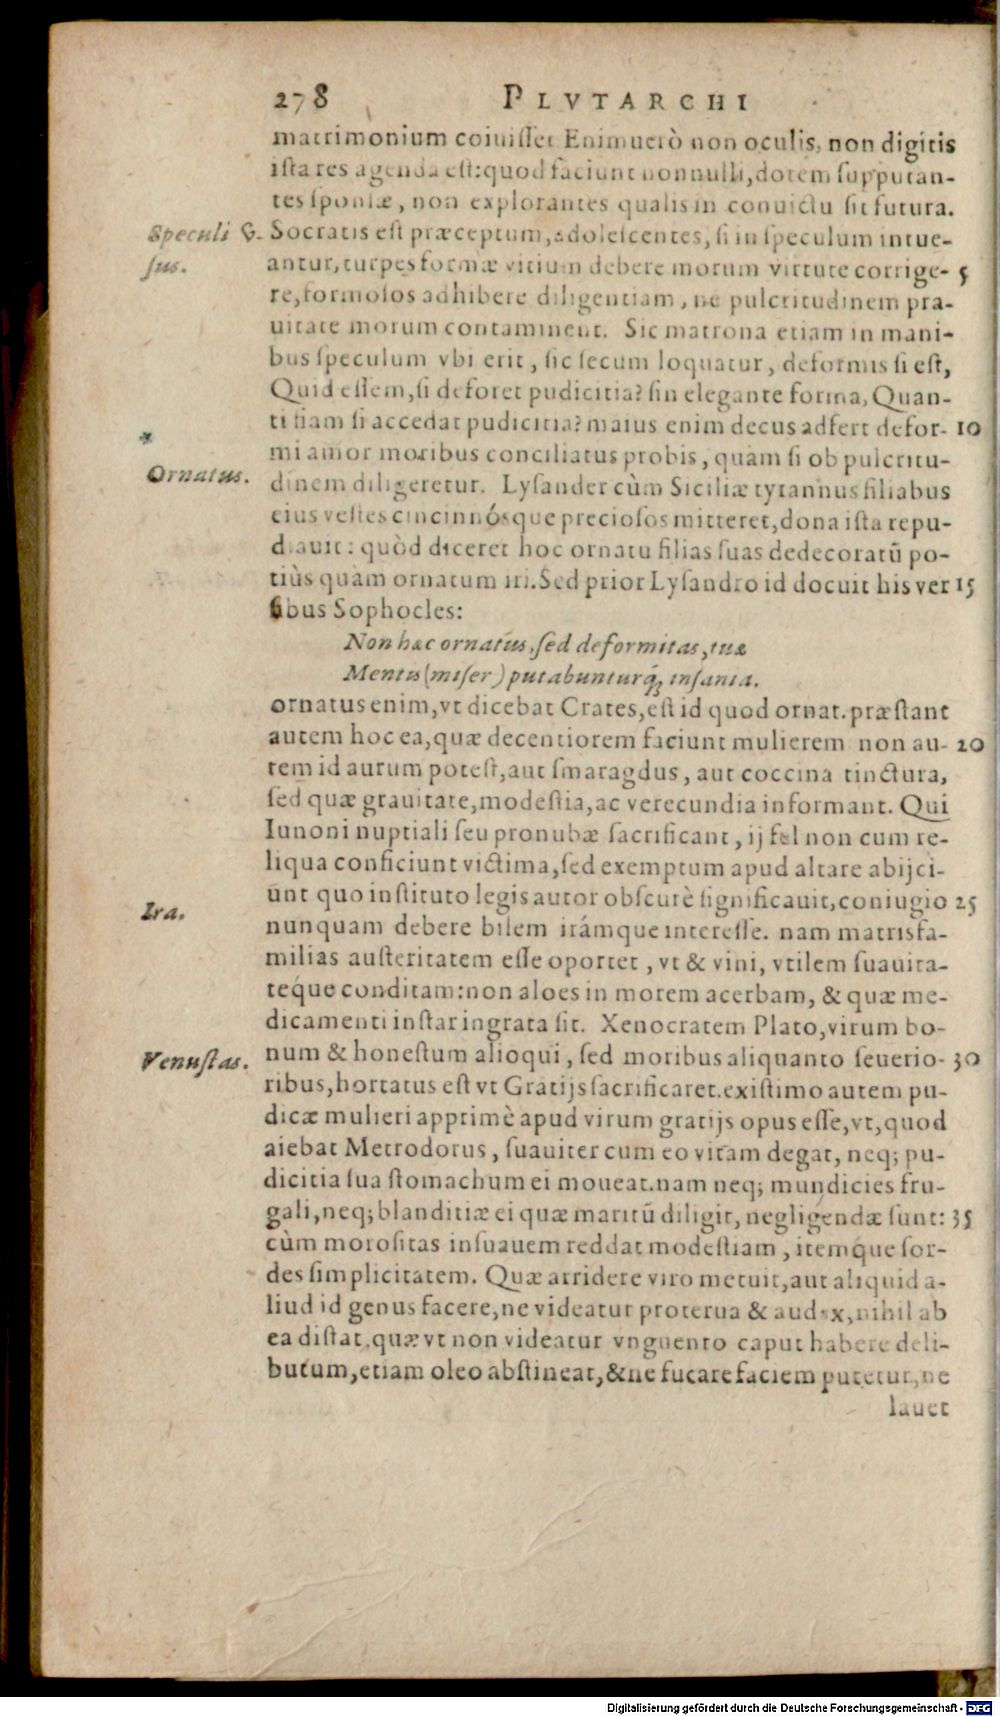 278 PLVTARCHI
matrimonium coiuisset Enimuerò non oculis, non digitis
ista res agenda est: quod faciunt nonnulli, dotem supputan-
tes sponsæ, non explorantes qualis in conuictu sit futura.
Speculi v- Socratis est præceptum, adolescentes, si in speculum intue-
sus. antur, turpes formæ vitium debere morum virtute corrige- 5
re, formosos adhibere diligentiam, ne pulcritudinem pra-
uitate morum contaminent. Sic matrona etiam in mani-
bus speculum vbi erit, sic secum loquatur, deformis si est,
Quid essem, si deforet pudicitia? sin elegante forma, Quan-
ti fiam si accedat pudicitia? maius enim decus adfert defor- 10
* mi amor moribus conciliatus probis, quàm si ob pulcritu-
Ornatus. dinem diligeretur. Lysander cùm Siciliæ tyrannus filiabus
eius vestes cincinnósque preciosos mitteret, dona ista repu-
diauit: quòd diceret hoc ornatu filias suas dedecoratū po-
tiùs quàm ornatum iri. Sed prior Lysandro id docuit his ver 15
sibus Sophocles:
Non hæc ornatus, sed deformitas, tuæ
Mentis (miser) putabunturq; insania.
ornatus enim, vt dicebat Crates, est id quod ornat. præstant
autem hoc ea, quæ decentiorem faciunt mulierem non au- 20
tem id aurum potest, aut smaragdus, aut coccina tinctura,
sed quæ grauitate, modestia, ac verecundia informant. Qui
Iunoni nuptiali seu pronubæ sacrificant, ij fel non cum re-
liqua conficiunt victima, sed exemptum apud altare abijci-
Ira. unt quo instituto legis autor obscurè significauit, coniugio 25
nunquam debere bilem irámque interesse. nam matrisfa-
milias austeritatem esse oportet, vt & vini, vtilem suauita-
teque conditam: non aloes in morem acerbam, & quæ me-
dicamenti instar ingrata sit. Xenocratem Plato, virum bo-
Venustas. num & honestum alioqui, sed moribus aliquanto seuerio- 30
ribus, hortatus est vt Gratijs sacrificaret. existimo autem pu-
dicæ mulieri apprimè apud virum gratijs opus esse, vt, quod
aiebat Metrodorus, suauiter cum eo vitam degat, neq; pu-
dicitia sua stomachum ei moueat. nam neq; mundicies fru-
gali, neq; blanditiæ ei quæ maritū diligit, negligendæ sunt: 35
cùm morositas insuauem reddat modestiam, itemque sor-
des simplicitatem. Quæ arridere viro metuit, aut aliquid a-
liud id genus facere, ne videatur proterua & audax, nihil ab
ea distat, quæ vt non videatur vnguento caput habere deli-
butum, etiam oleo abstineat, & ne fucare faciem putetur, ne
lauet
Digitalisierung gefördert durch die Deutsche Forschungsgemeinschaft - DFG